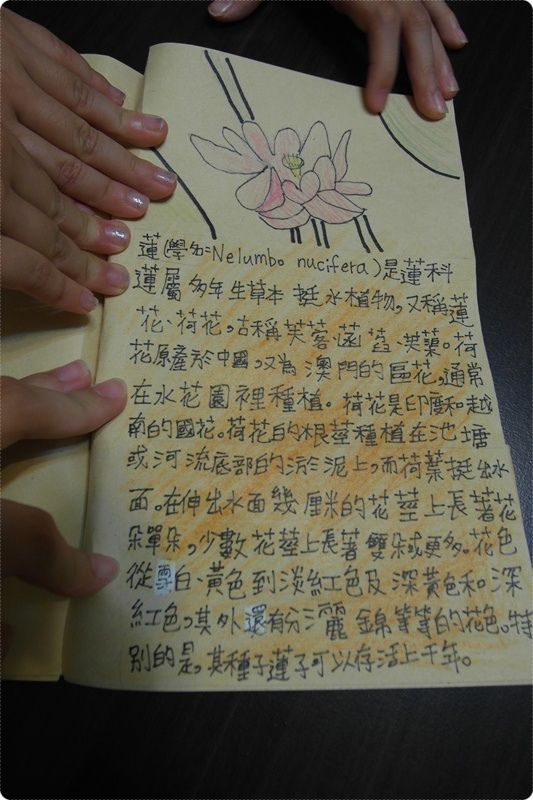 蓮(學名:Nelumbo nucifera)是蓮科
蓮屬多年生草本挺水植物,又稱蓮
花、荷花,古稱芙蓉、菡萏、芙蕖。荷
花原產於中國,又為澳門的區花,通常
在水花園裡種植。荷花是印度和越
南的國花。荷花的根莖種植在池塘
或河流底部的淤泥上,而荷葉挺出水
面。在伸出水面幾厘米的花莖上長著花
朵單朵,少數花莖上長著雙朵或更多。花色
從雪白、黃色到淡紅色及深黃色和深
紅色,其外還有分灑錦等等的花色。特
別的是,其種子蓮子可以存活上千年。